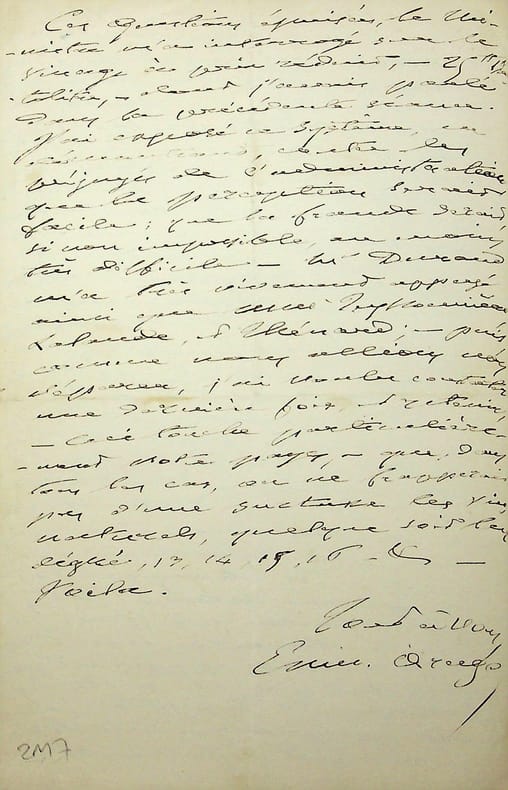 Ces questions épuisées, le Mi-
-nistre m'a interrogé sur le
vinage à prix réduit, — 25
dont j'avais parlé
dans la précédente séance.
J'ai exposé ce système, en
contre les
préjugés de l'administration
que la perception serait
facile; que la fraude serait,
sinon impossible, au moins
très difficile — Mr Durand
m'a très vivement appuyé
ainsi que
Lalande, et Thénard; — puis
comme nous allions nous
séparer, j'ai voulu constater
une dernière fois,
— Ceci touche particulière-
-ment notre pays, — que, dans
tous les cas, on ne frapperait
pas d'une surtaxe les vins
naturels, quelque soit leur
degré, 13, 14, 15, 16 —
Voilà.
Tout à Vous
Emm. Arago
2M7